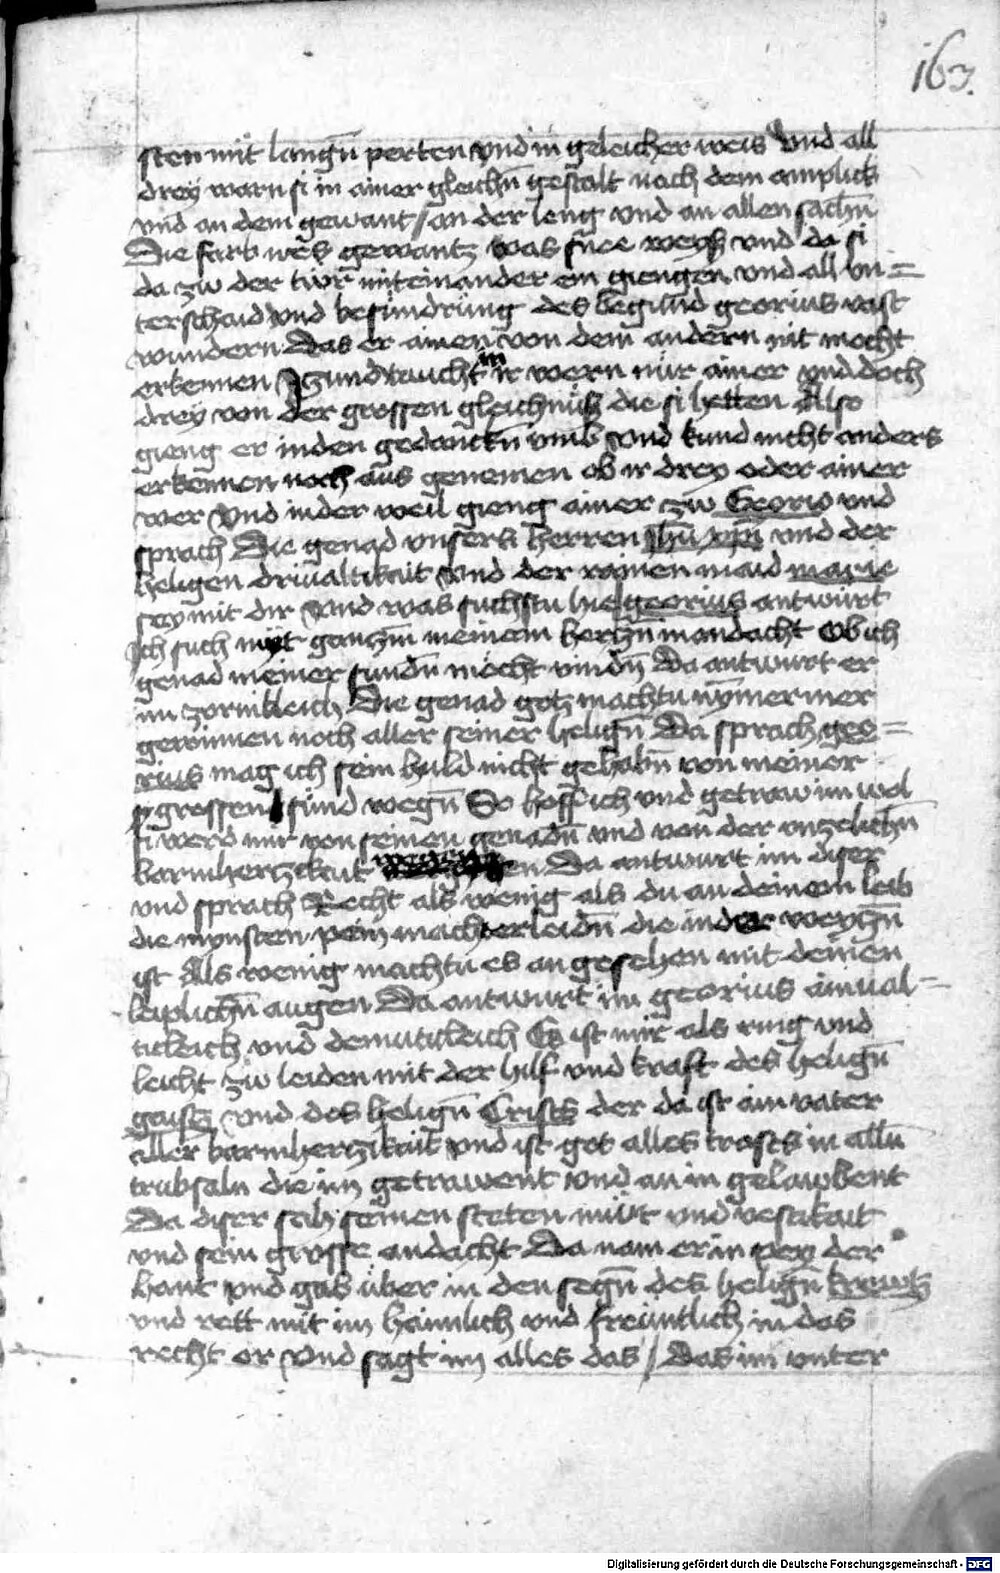 163.
sten mit langn̄ perten vnd in geleicher weis Vnd all
drey warn si in ainer gleichn̄ gestalt nach dem anplick
vnd an dem gewant / an der leng vnd an allen sachn̄
Die farb irs gewantz was snee weyß vnd da si
da zw der tür miteinander ein giengen vnd all vn=
terschaid vnd besundrung des begund georius vast
wundern Das er ainen von dem andern nit mocht
erkennen Izund taucht in ir wern nür ainer vnd doch
drey von der grossen gleichnüß die si hetten Also
gieng er in den gedanckn̄ vmb vnd kund nicht anders
erkennen noch aus genemen ob ir drey oder ainer
wer Vnd in der weil gieng ainer zw Georio vnd
sprach Die genad vnsers herren ihū xpī vnd der
heligen driualtikait vnd der rainen maid marie
sey mit dir Vnd was suchstu hie georius antwürt
Ich such mit ganczm̄ meinem herczn̄ in andacht Ob ich
genad meiner sundn̄ möcht vindn̄ Da antwurt er
im zornikleich Die genad gotz machtu nymermer
gewinnen noch aller seiner heilign̄ Da sprach geo=
rius mag ich sein huld nicht gehabn̄ von meiner
grossen sünd wegn̄ So hoff ich vnd getraw im wol
si werd mir von seinen genadn̄ vnd von der vnzelichn̄
barmherzikait wegen Da antwurt im diser
vnd sprach Recht als wenig als du an deinem leib
die mynsten pein macht erleidn̄ die in der weyczn̄
ist Als wenig machtu es an gesehen mit deinen
leiplichn̄ augen Da antwurt im georius ainual=
tikleich vnd demutikleich Es ist mir als ring vnd
leicht zw leiden mit der hilf vnd kraft des helign̄
gaistz vnd des helign̄ Cristz der da ist ain vater
aller barmherzikait vnd ist got alles trosts in alln̄
trubsaln die im getrawent vnd an in gelawbent
Da diser sach seinen steten müt vnd vestikait
vnd sein grosse andacht Da nam er in pey der
hant vnd gab über in den segn̄ des heilign̄ krawtz
vnd rett mit im haimlich vnd freuntlich in das
recht or Vnd sagt im alles das / Das im vnter
Digitalisierung gefördert durch die Deutsche Forschungsgemeinschaft - DFG